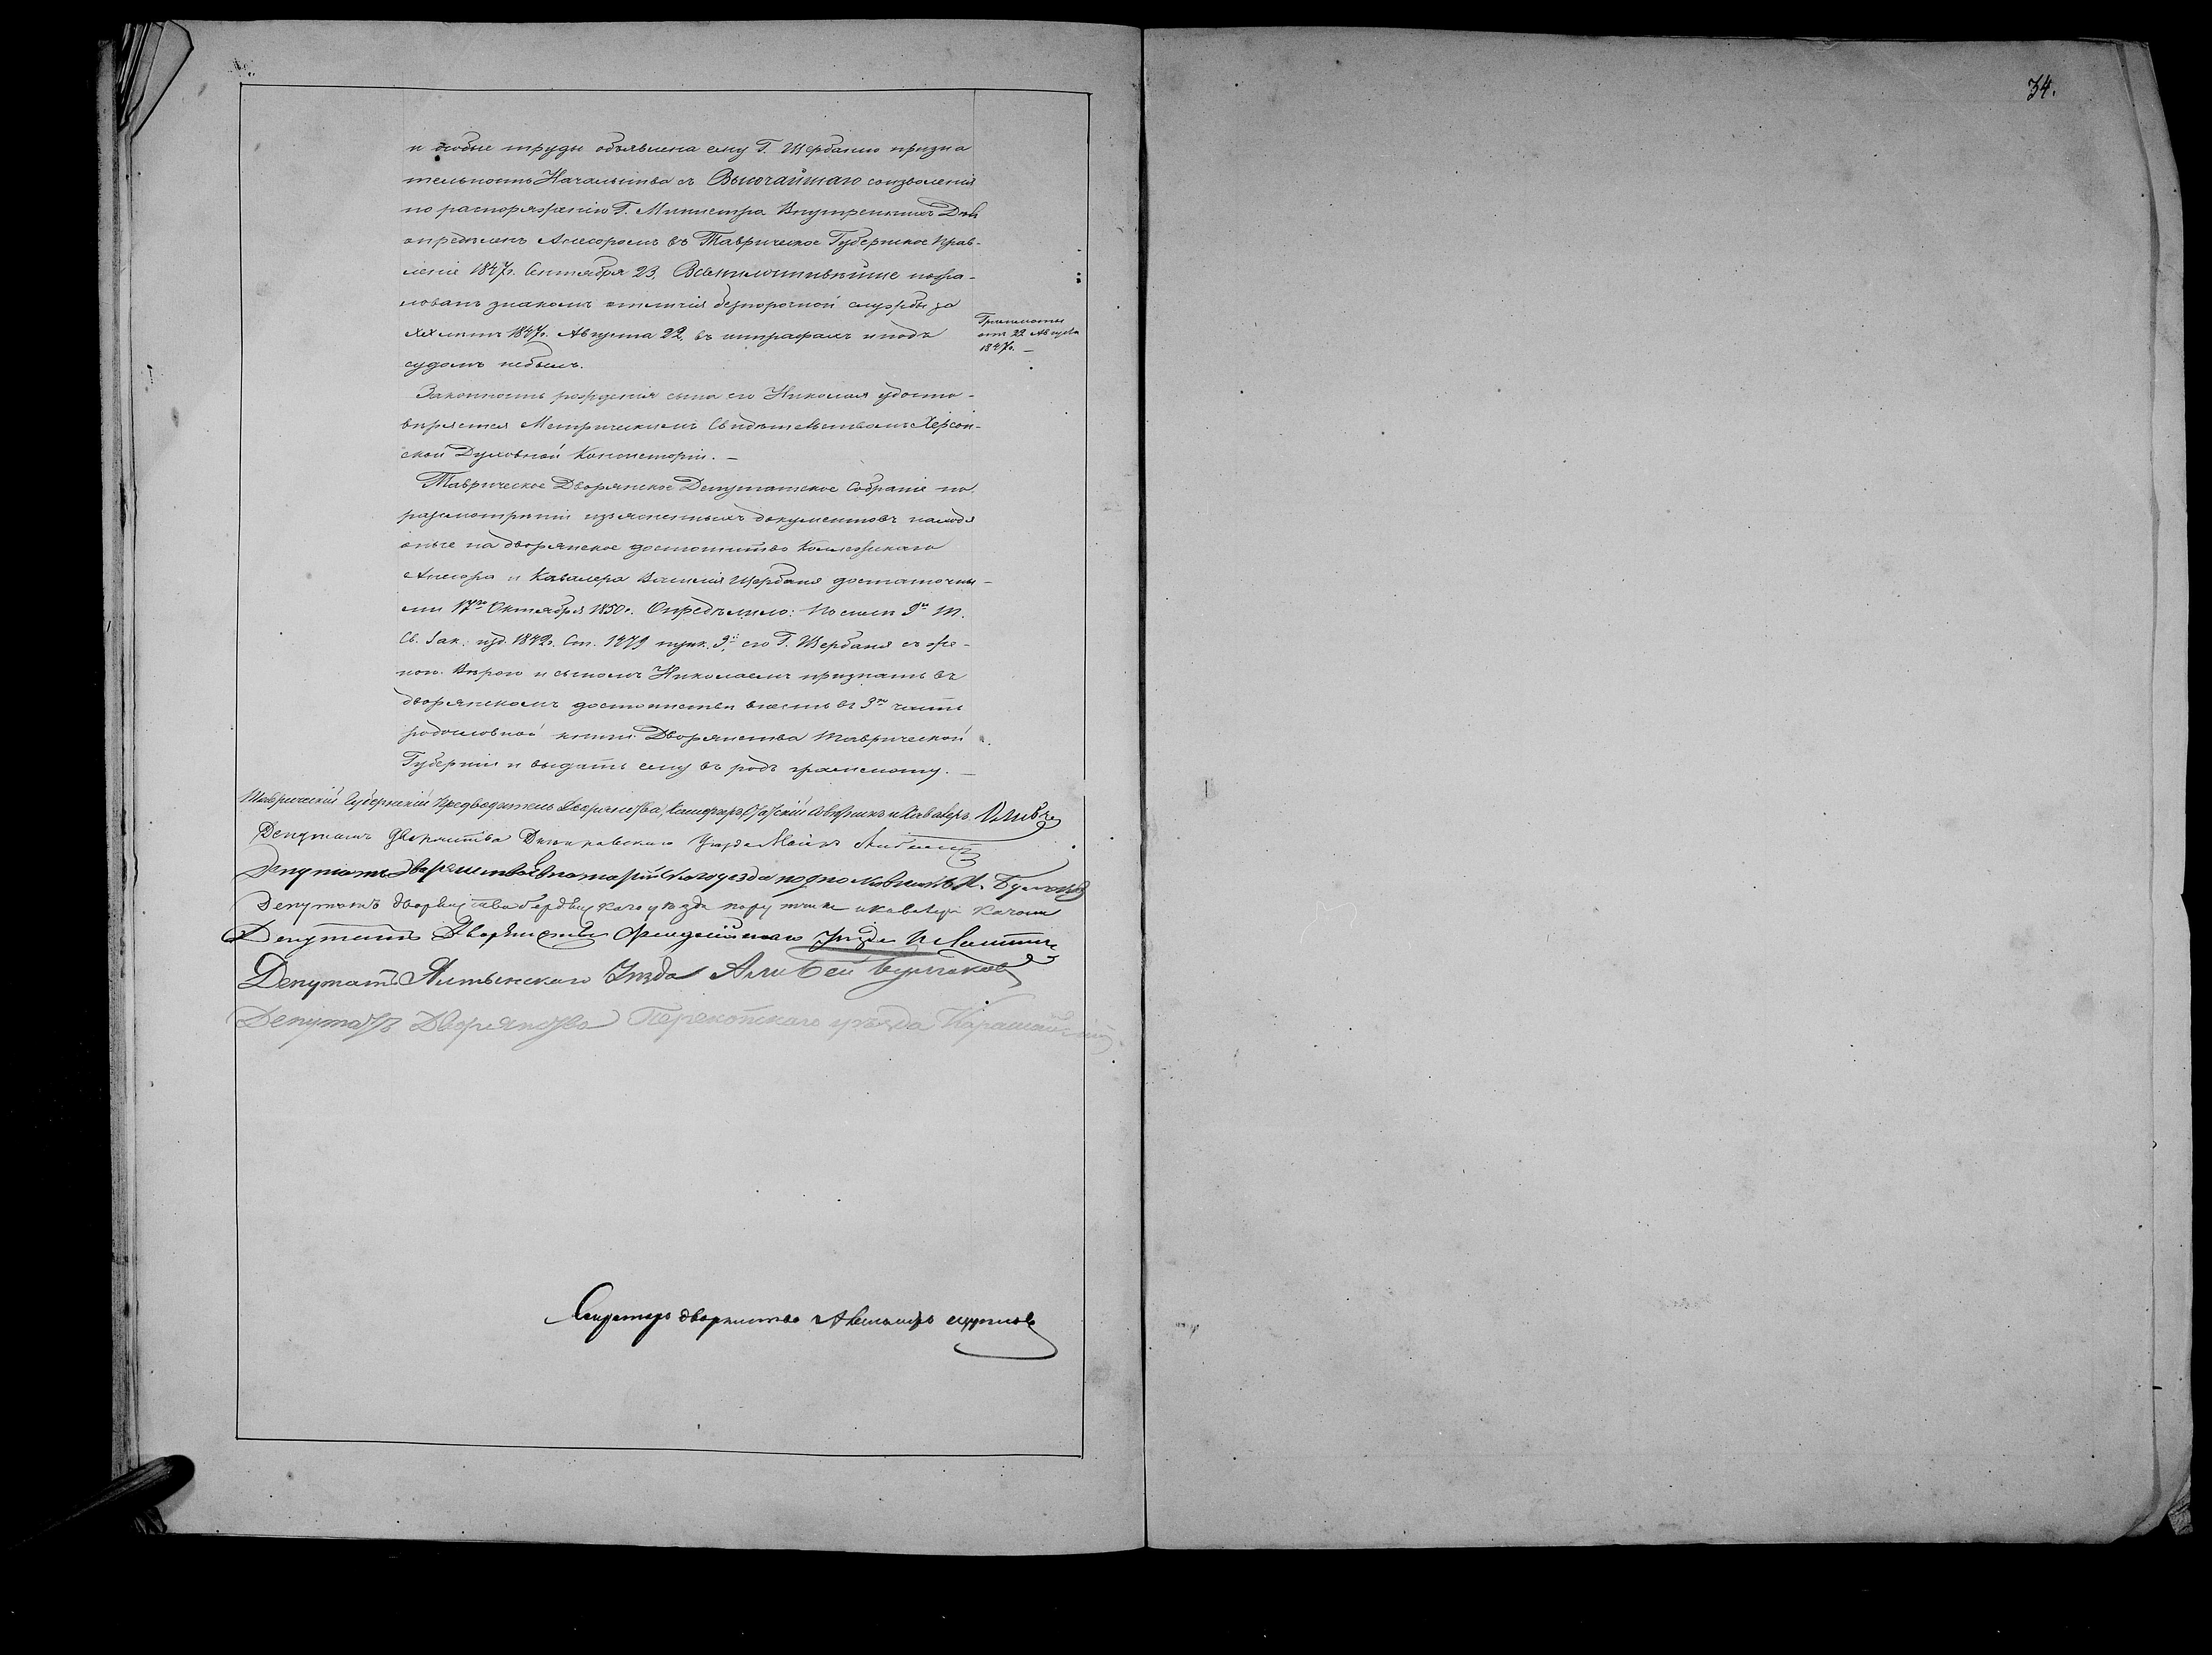 34.
и особые труды объявлена ему Г. Щербаню призна
тельность Начальства съ Высочайшаго соизволенія
по распоряженію Г. Министра Внутреннихъ Дѣлъ
опредѣленъ Ассесоромъ въ Таврическое Губернское Прав-
леніе 1847г. Сентября 23. Всемилостивѣйше пожа-
лованъ знакомъ отличія безпорочной службы за
XX лѣтъ 1847г. Августа 22, въ штрафахъ и подъ
судомъ небылъ.
Грамоты
отъ 22 Августа
1847г. —
Законность рожденія сына его Николая удосто-
вѣряется Метрическимъ Свидѣтельствомъ Херсон-
ской Духовной Консисторіи. —
Таврическое Дворянское Депутатское Собраніе по
разсмотрѣніи изъясненныхъ документовъ находя
оные на дворянское достоинство Коллежскаго
Ассесора и Кавалера Василія Щербаня достаточны-
ми 17го Октября 1850г. Опредѣлило: По силѣ 9го Т.
Св. Зак. изд. 1842г. Ст. 1479 пунк. 3й его Г. Щербаня съ же-
ною Вѣрою и сыномъ Николаемъ признать въ
дворянскомъ достоинствѣ внесть въ 3ю часть
родословной книги Дворянства Таврической
Губерніи и выдать ему въ родъ грамоту. —
Таврическій Губернскій Предводитель Дворянства, Камергеръ, Статскій Совѣтникъ и Кавалеръ
Депутатъ Дворянства Днѣпровскаго Уѣзда
Депутатъ Дворянства Евпаторійскаго уезда подполковникъ
Депутатъ дворянства бердянскаго уѣзда поручикъ и кавалеръ
Депутатъ Дворянства Феодосійскаго Уѣзда
Депутатъ Ялтинскаго Уѣзда Али Бей Булгаковъ
Депутатъ Дворянства Перекопскаго уѣзда Карашайскій
Секретарь дворянства